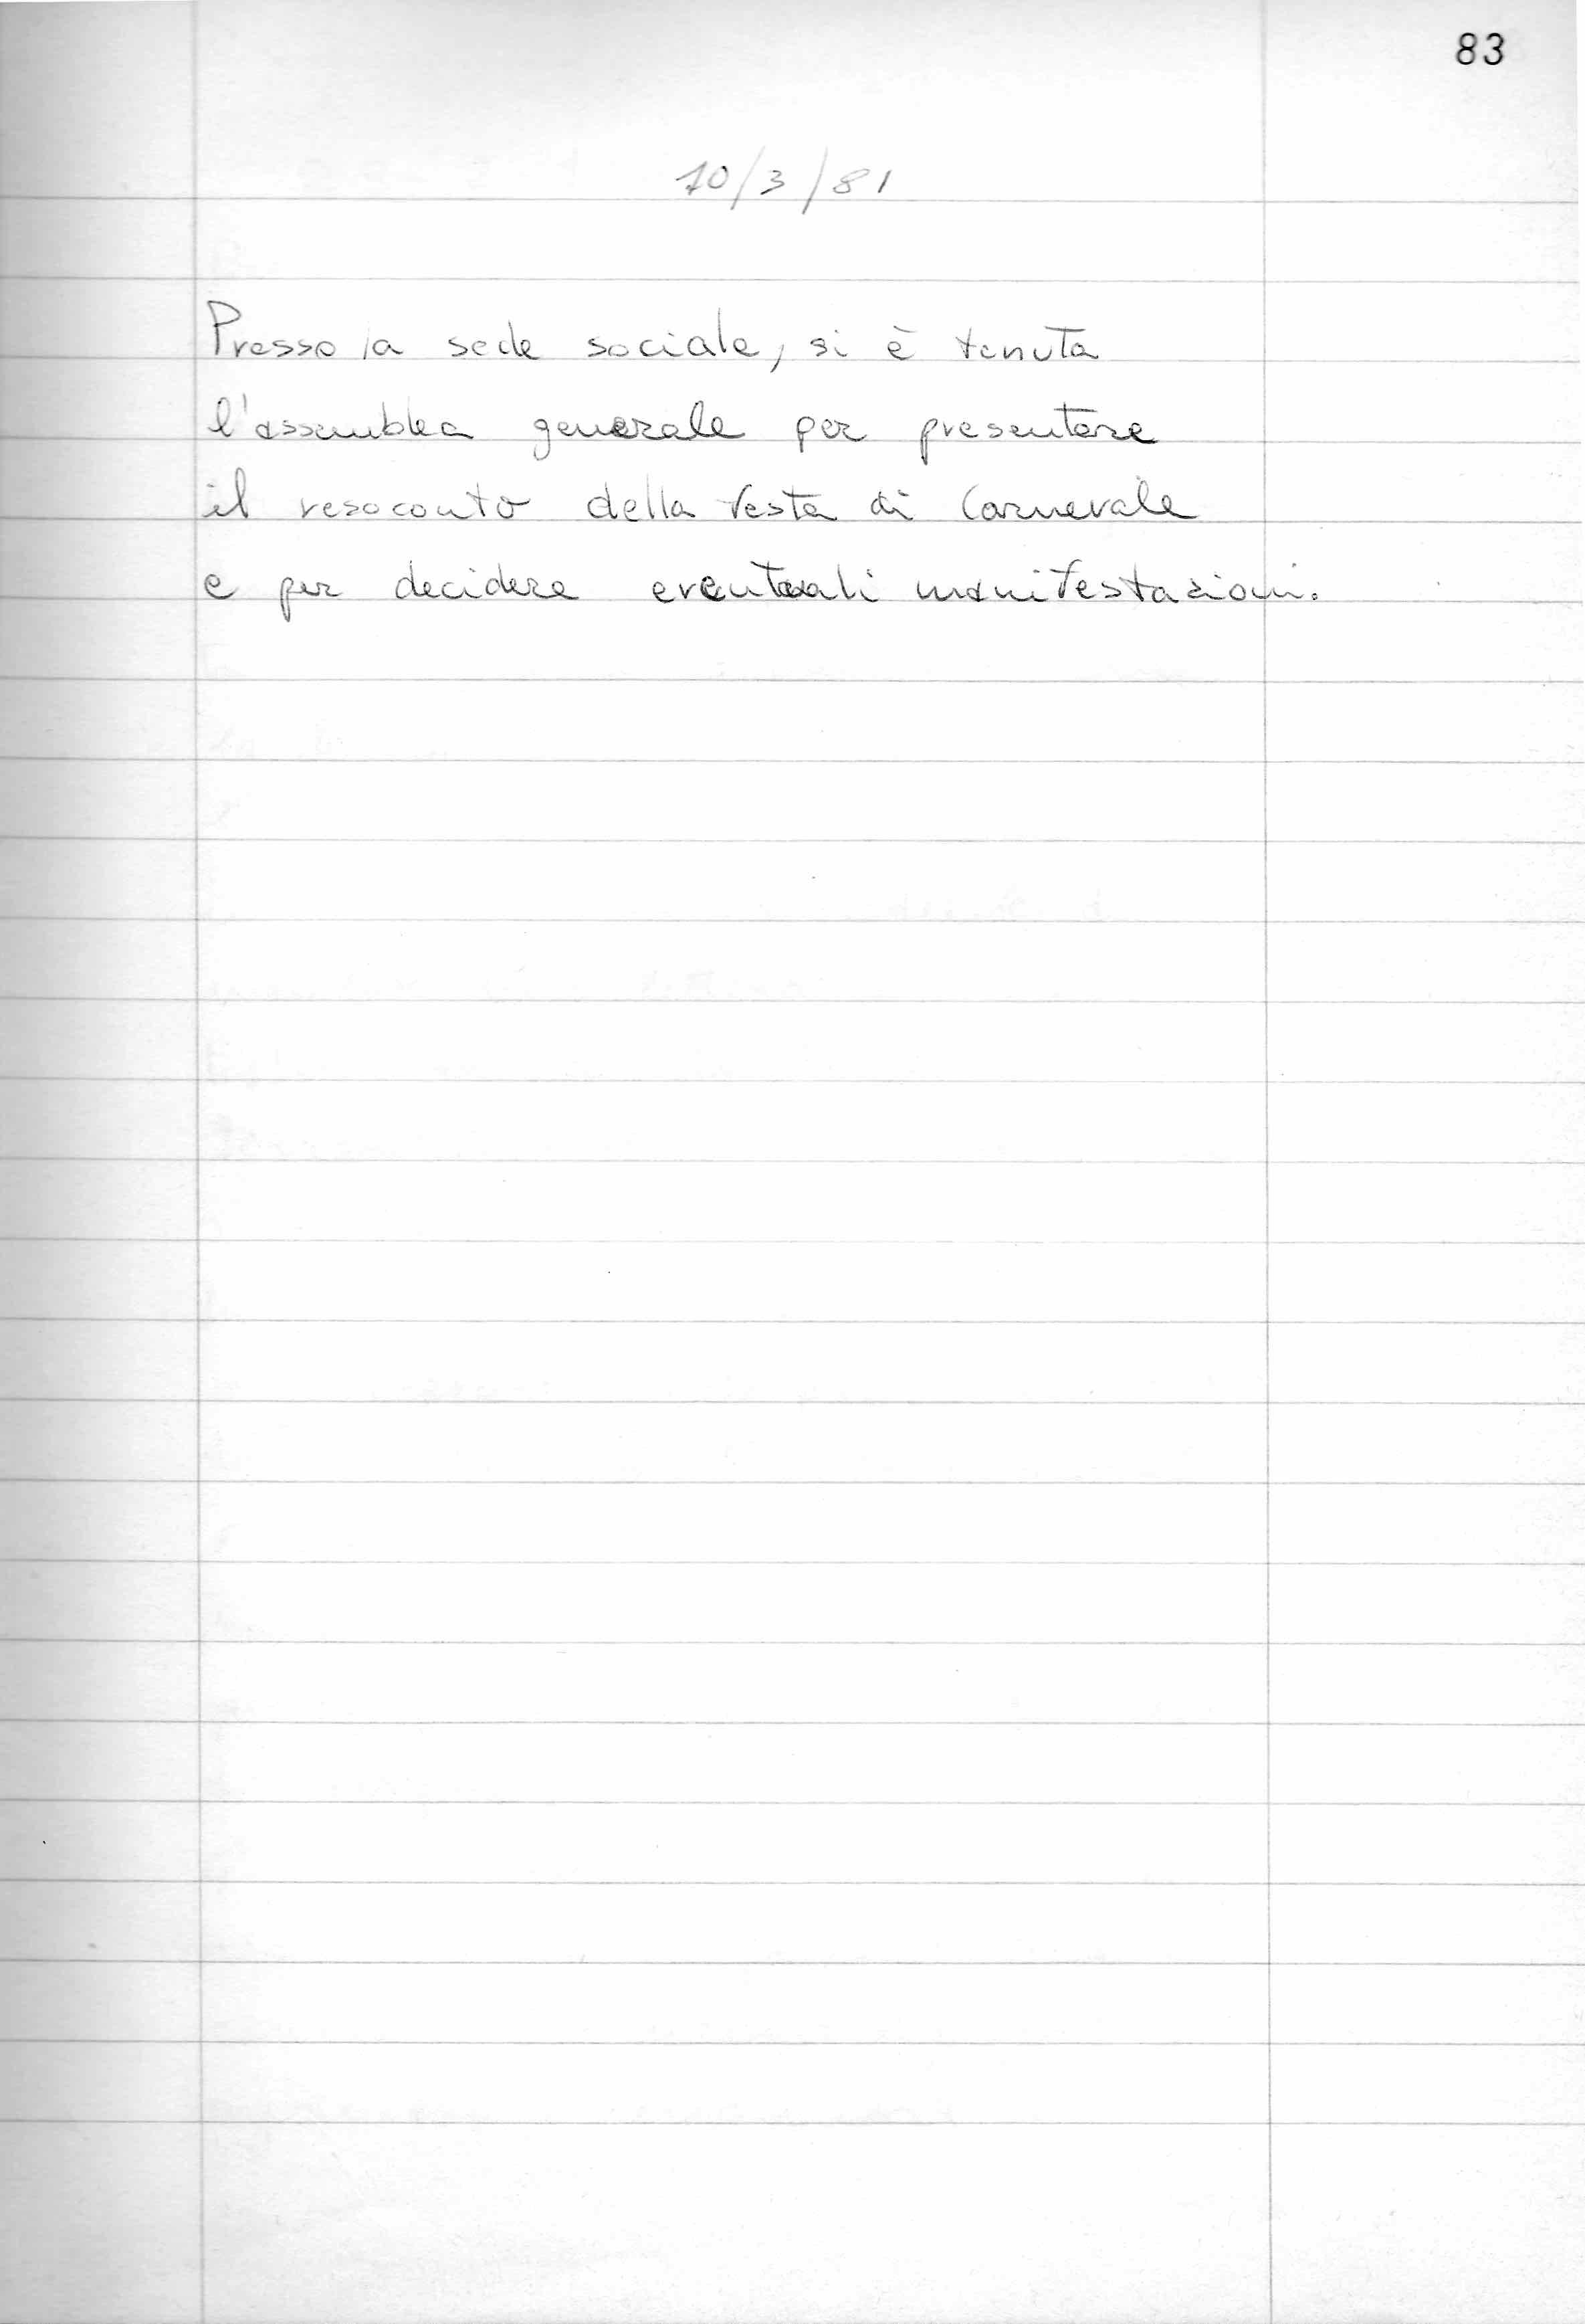 83
10/3/81
Presso la sede sociale, si è tenuta
l'assemblea generale per presentare
il resoconto della festa di Carnevale
e per decidere eventuali manifestazioni.